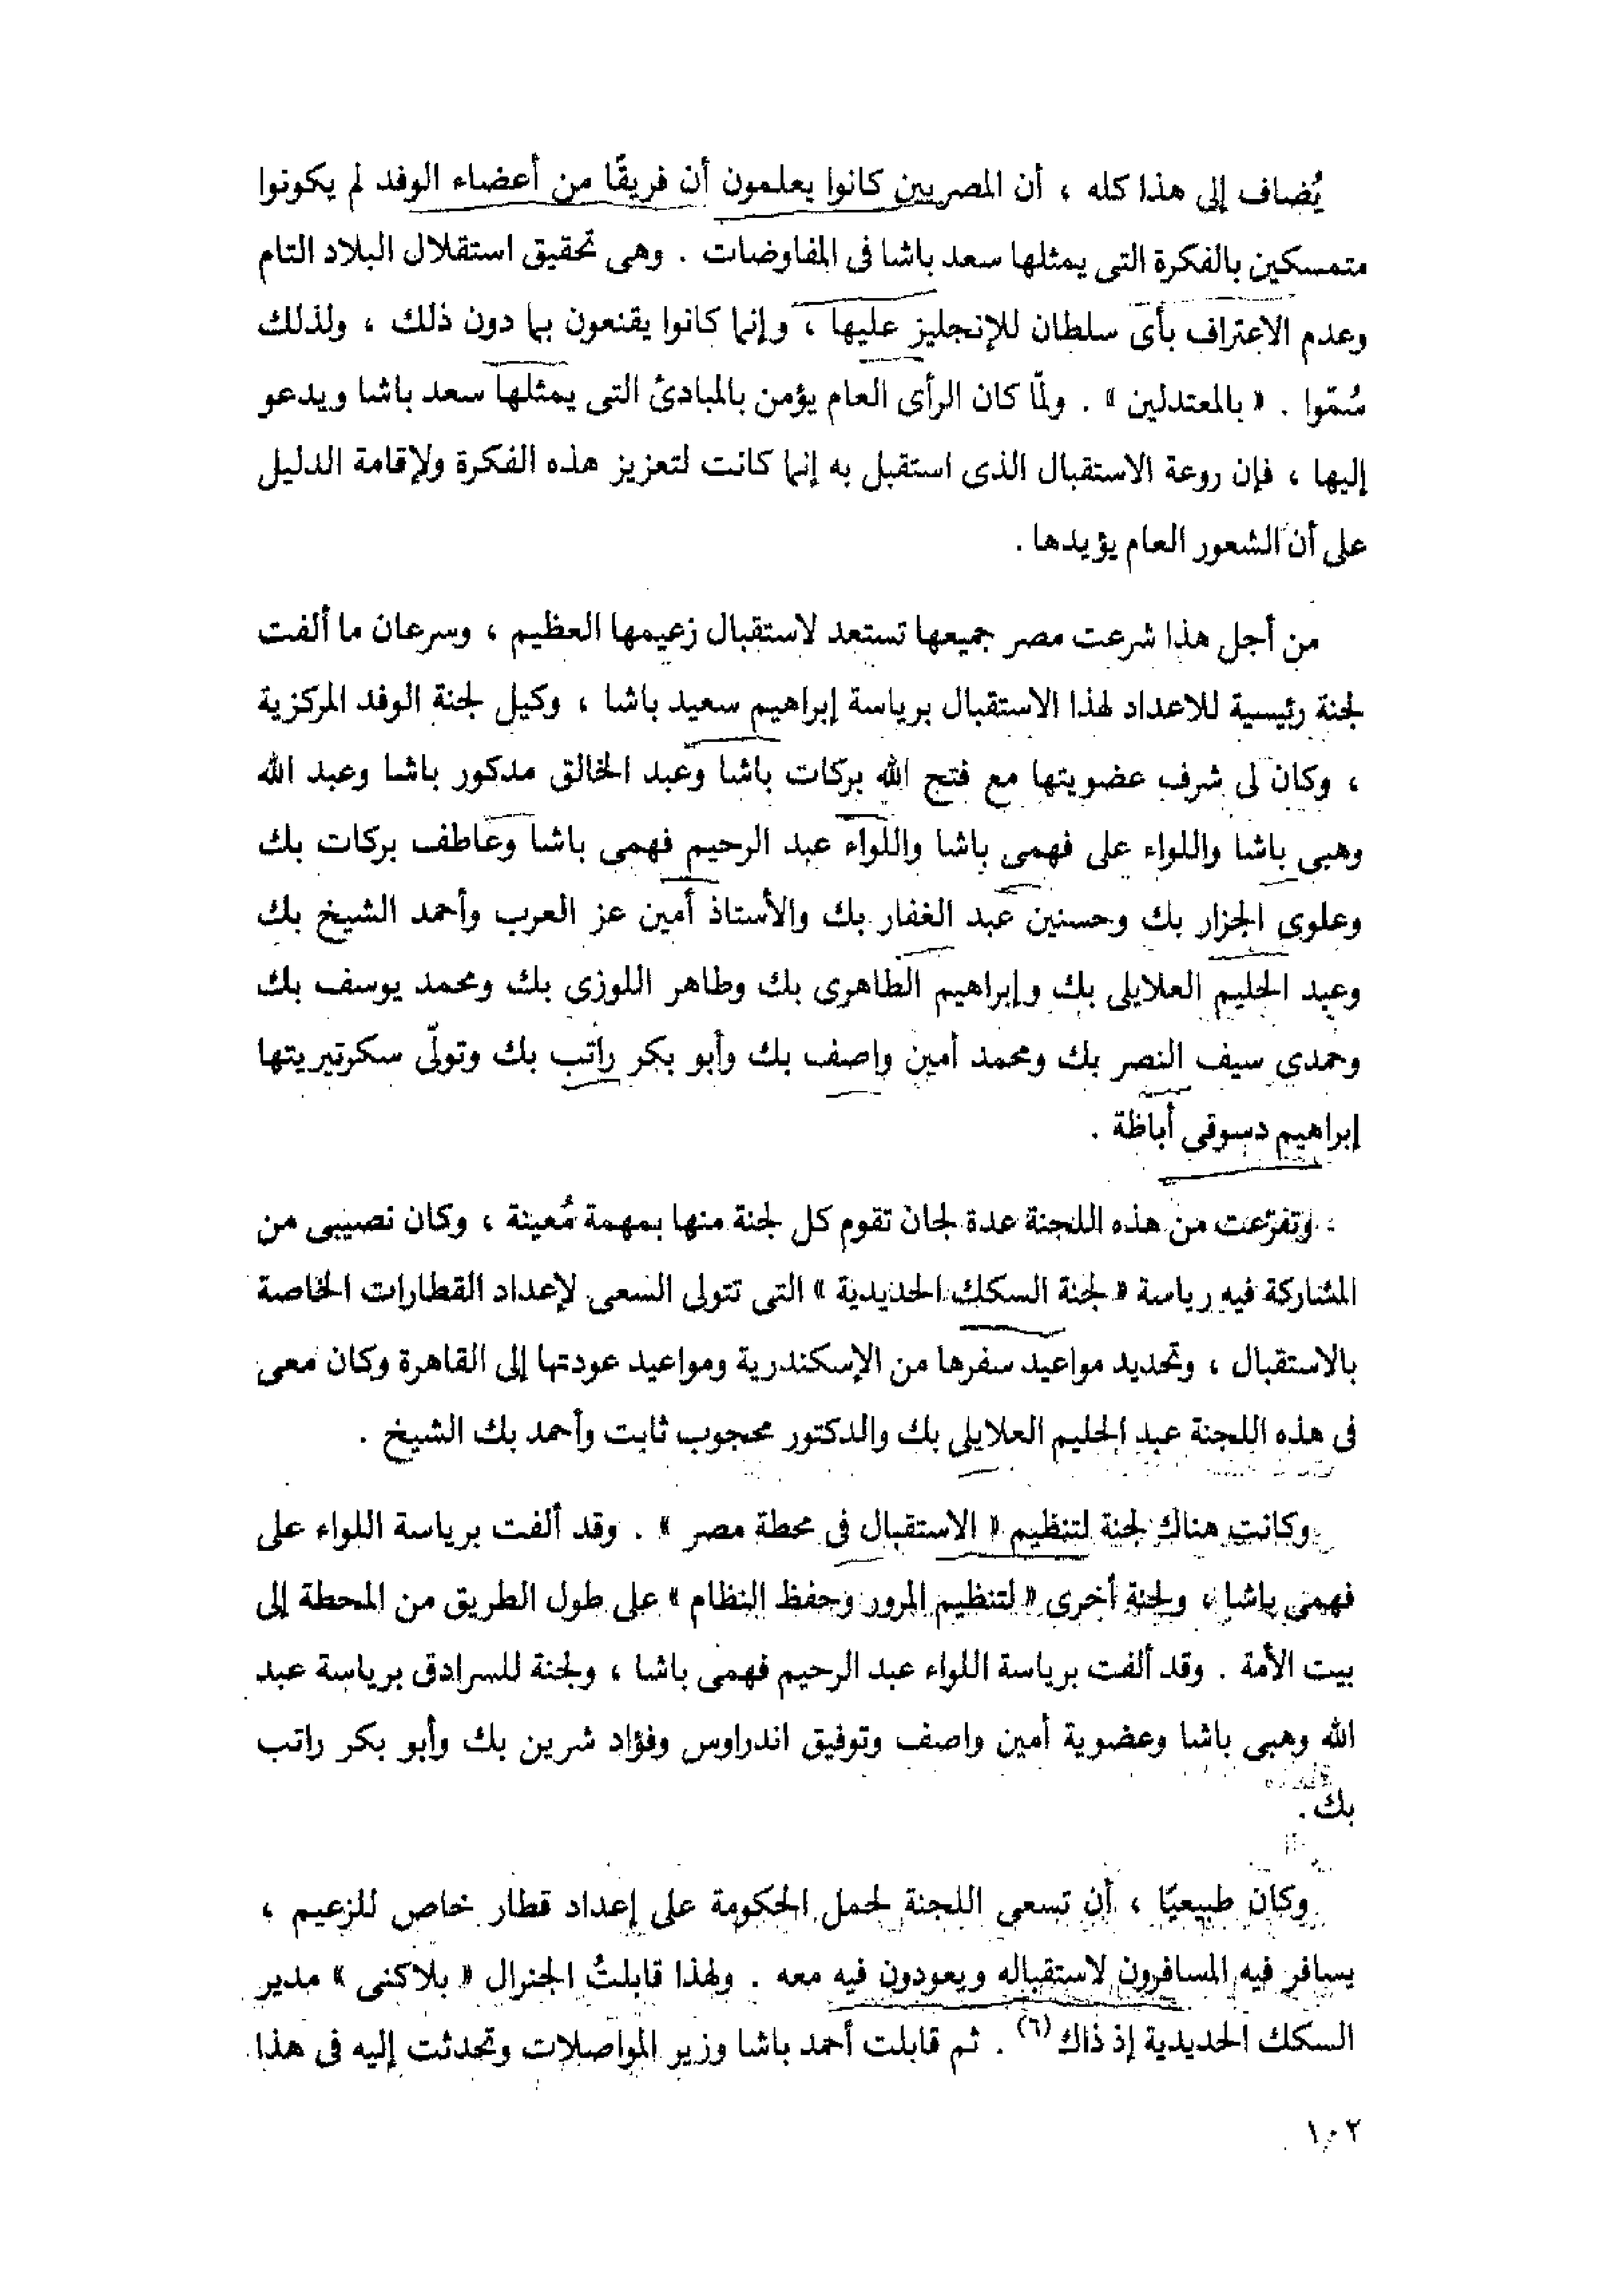 يُضاف إلى هذا كله ، أن المصريين كانوا يعلمون أن فريقًا من أعضاء الوفد لم يكونوا
متمسكين بالفكرة التى يمثلها سعد باشا فى المفاوضات . وهى تحقيق استقلال البلاد التام
وعدم الاعتراف بأى سلطان للإنجليز عليها ، وإنما كانوا يقنعون بما دون ذلك ، ولذلك
سُمّوا . « بالمعتدلين » . ولمّا كان الرأى العام يؤمن بالمبادئ التى يمثلها سعد باشا ويدعو
إليها ، فإن روعة الاستقبال الذى استقبل به إنما كانت لتعزيز هذه الفكرة ولإقامة الدليل
على أن الشعور العام يؤيدها .
من أجل هذا شرعت مصر جميعها تستعد لاستقبال زعيمها العظيم ، وسرعان ما ألفت
لجنة رئيسية للاعداد لهذا الاستقبال برياسة إبراهيم سعيد باشا ، وكيل لجنة الوفد المركزية
، وكان لى شرف عضويتها مع فتح الله بركات باشا وعبد الخالق مدكور باشا وعبد الله
وهبى باشا واللواء على فهمى باشا واللواء عبد الرحيم فهمى باشا وعاطف بركات بك
وعلوى الجزار بك وحسنين عبد الغفار بك والأستاذ أمين عز العرب وأحمد الشيخ بك
وعبد الحليم العلايلى بك وإبراهيم الطاهرى بك وطاهر اللوزى بك ومحمد يوسف بك
وحمدى سيف النصر بك ومحمد أمين واصف بك وأبو بكر راتب بك وتولّى سكرتيريتها
إبراهيم دسوقى أباظة .
وتفرّعت من هذه اللجنة عدة لجان تقوم كل لجنة منها بمهمة مُعينة ، وكان نصيبى من
المشاركة فيه رياسة « لجنة السكك الحديدية » التى تتولى السعى لإعداد القطارات الخاصة
بالاستقبال ، وتحديد مواعيد سفرها من الإسكندرية ومواعيد عودتها إلى القاهرة وكان معى
فى هذه اللجنة عبد الحليم العلايلى بك والدكتور محجوب ثابت وأحمد بك الشيخ .
وكانت هناك لجنة لتنظيم « الاستقبال فى محطة مصر » . وقد ألفت برياسة اللواء على
فهمى باشا ، ولجنة أخرى « لتنظيم المرور وحفظ النظام » على طول الطريق من المحطة إلى
بيت الأمة . وقد ألفت برياسة اللواء عبد الرحيم فهمى باشا ، ولجنة للسرادق برياسة عبد
الله وهبى باشا وعضوية أمين واصف وتوفيق اندراوس وفؤاد شرين بك وأبو بكر راتب
بك .
وكان طبيعيًا ، أن تسعى اللجنة لحمل الحكومة على إعداد قطار خاص للزعيم ،
يسافر فيه المسافرون لاستقباله ويعودون فيه معه . ولهذا قابلتُ الجنرال « بلاكنى » مدير
السكك الحديدية إذ ذاك (٦) . ثم قابلت أحمد باشا وزير المواصلات وتحدثت إليه فى هذا
١٠٢